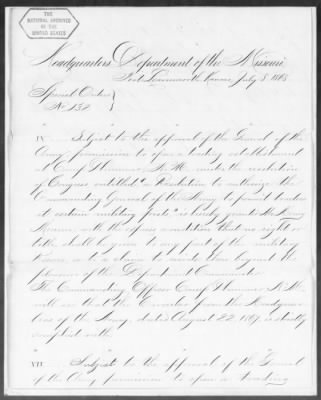 THE
NATIONAL ARCHIVES
OF THE
UNITED STATES
Headquarters Department of the Missouri
Fort Leavenworth Kansas July 8 1868
Special Orders
No 132
IX Subject to the approval of the General of the
Army permission to open a trading establishment
at Camp N. M. under the resolution
of Congress entitled "a Resolution to authorize the
Commanding General of the Army to permit traders
at certain military posts" is hereby granted
with the express condition that no right or
title shall be given to any part of the military
Reserve, or to a claim to reside there beyond the
pleasure of the Department Commander.
The Commanding Officer Camp N. M.
will see that the Circular from the Headquar-
ters of the Army, dated August 22 1867, is strictly
complied with.
VII Subject to the approval of the General
of the Army permission to open a trading